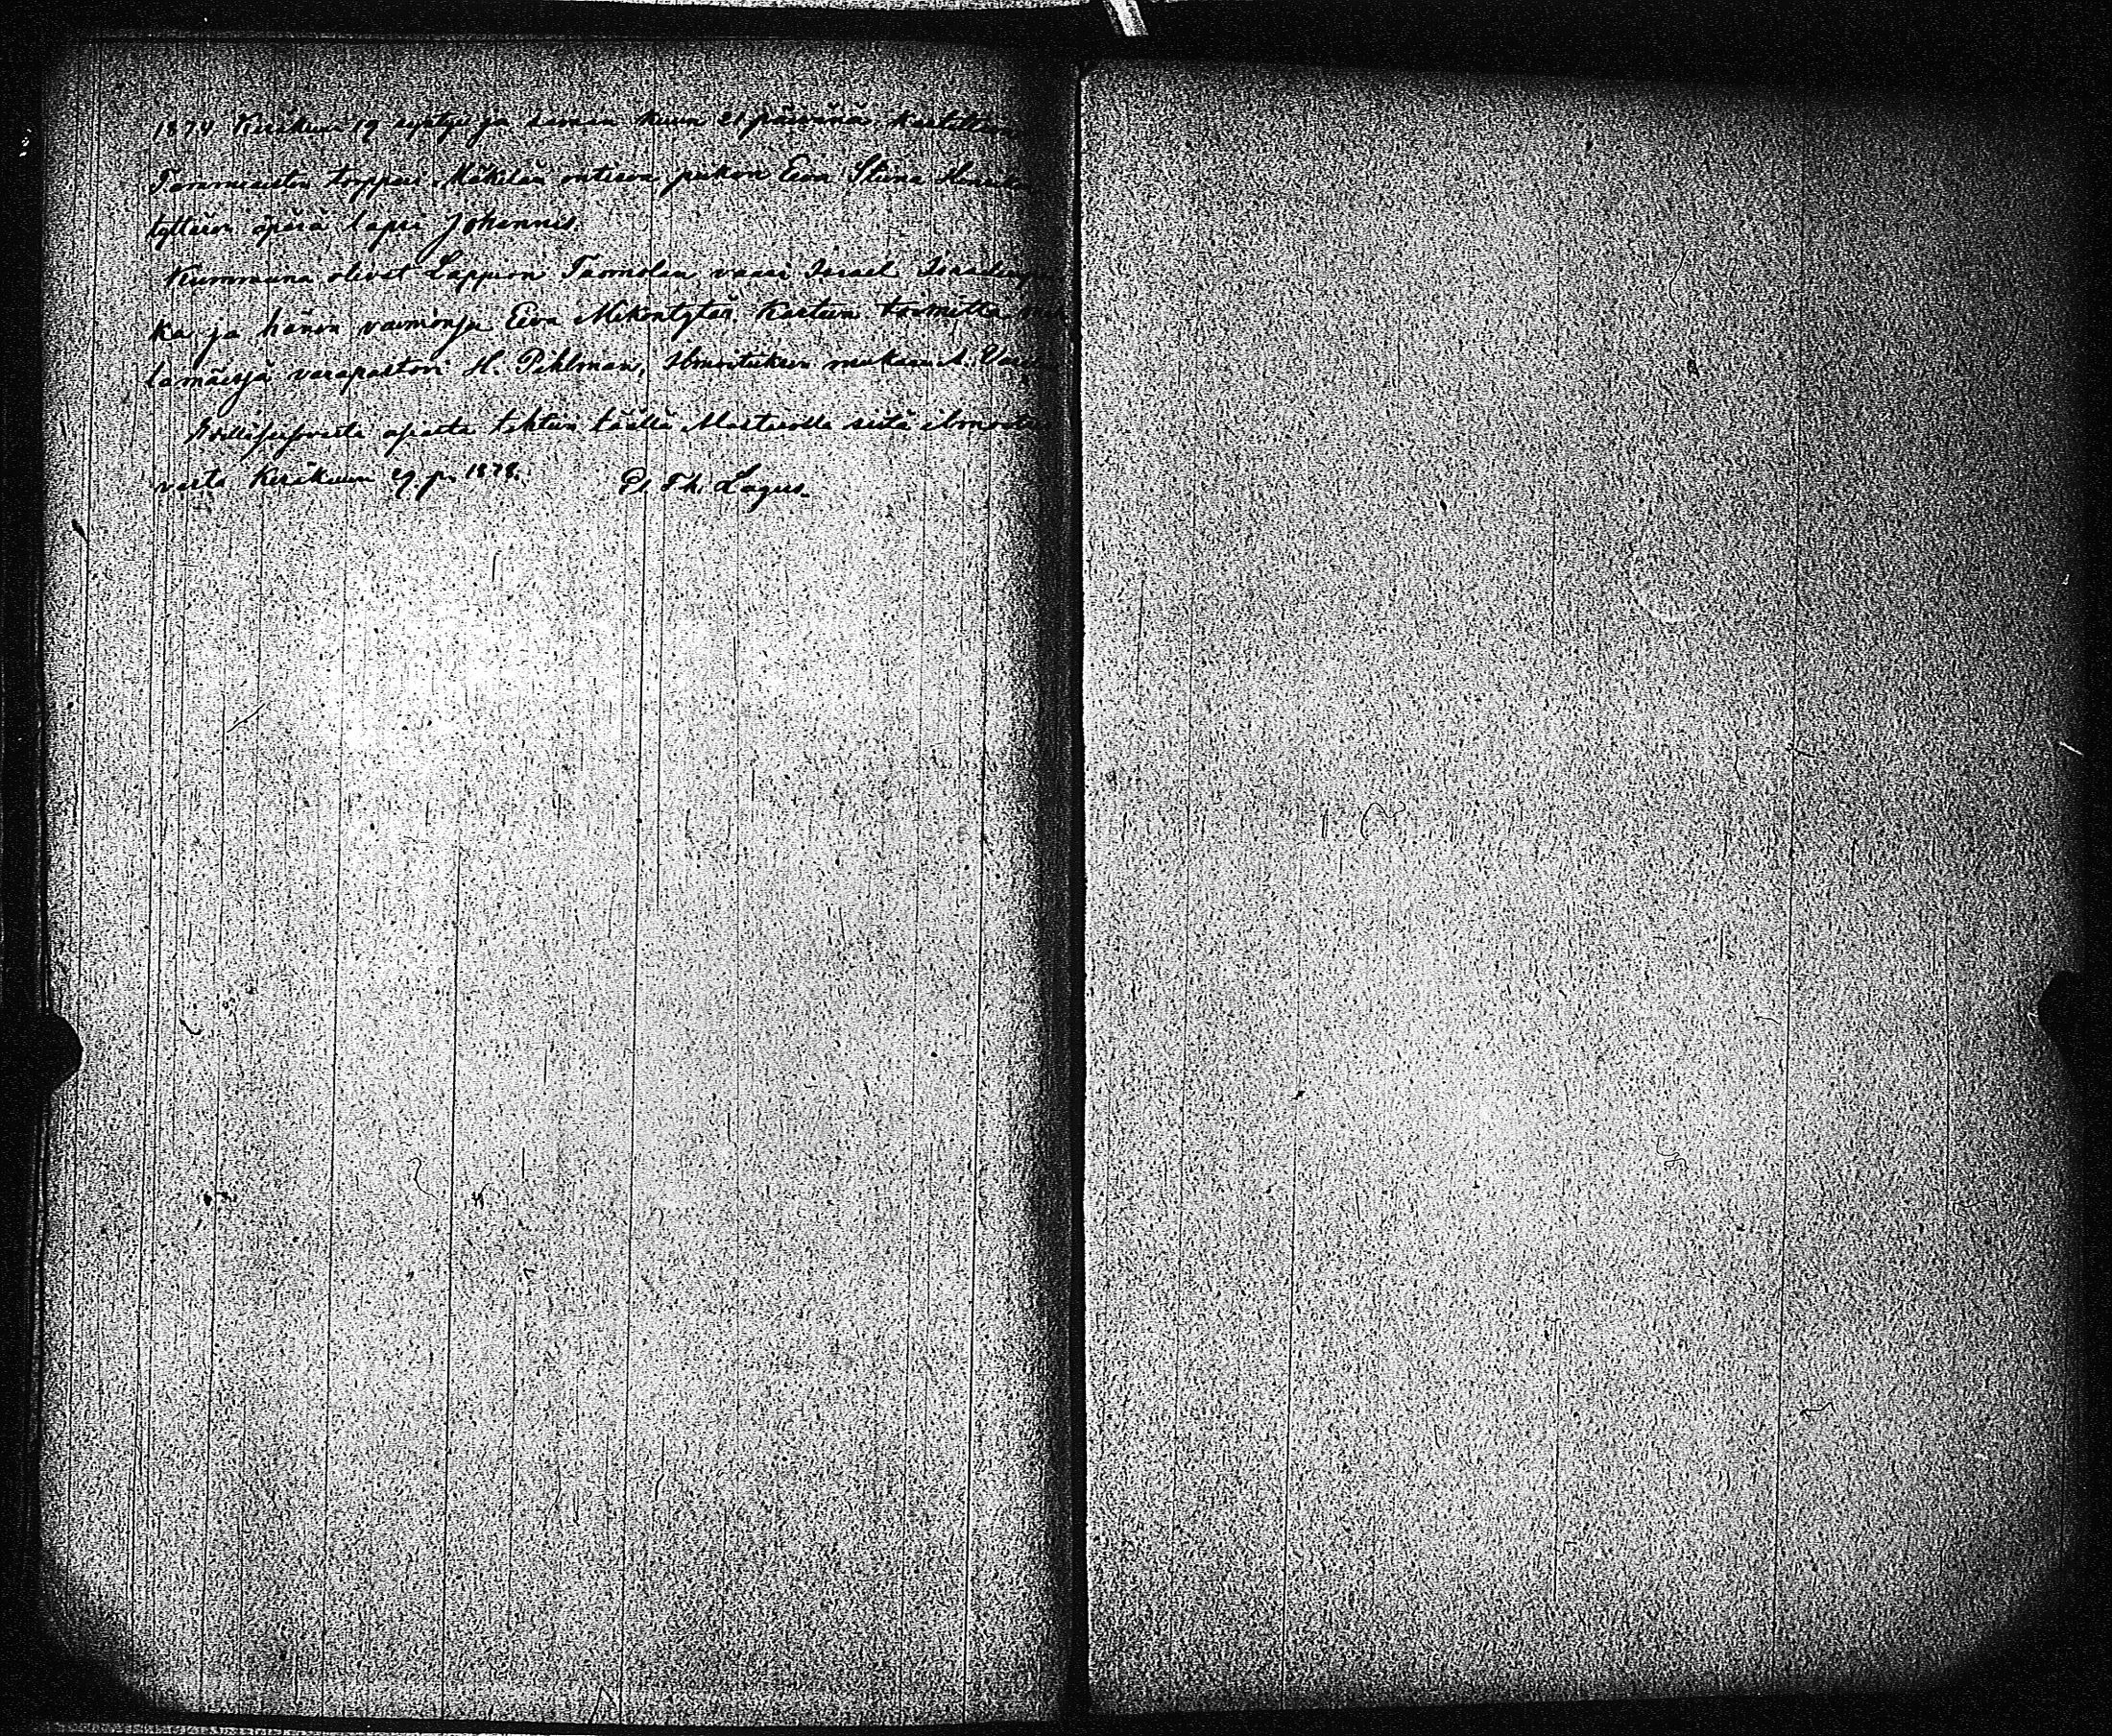 1874 Kesäkuun 19 syntyi ja saman kuun 21 päivänä kastettiin
Tammiaisten torppari Mäkilän entisen piikan Eeva Stiina
tyttären äpärä lapsi Johannes.
Kummina olivat Lappron Tuomolan vaari Israel
ka ja hänen vaimonsa Eeva Mikontytär. Kasteen toimitta
lamäessä varapastori H. Pihlman, Ilmoituksen mukaan A.
äpärästä tehtiin täällä Marttilla siitä ilmoitus
vasta Kesäkuun 29 p. 1878. E. Th. Lagus.